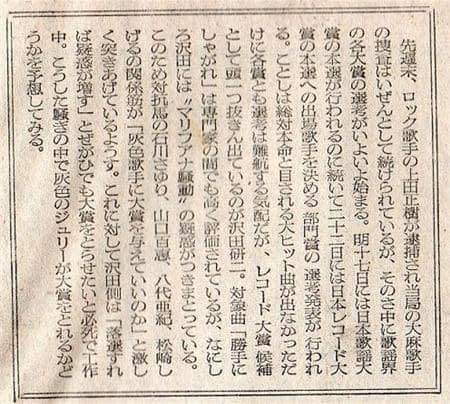 先週末、ロック歌手の上田正樹が逮捕され当局の大麻歌手
の捜査はいぜんとして続けられているが、そのさ中に歌謡界
の各大賞の選考がいよいよ始まる。明十七日には日本歌謡大
賞の本選が行われるのに続いて二十二日には日本レコード大
賞の本選への出場歌手を決める部門賞の選考発表が行われ
る。ことしは総対本命と目される大ヒット曲が出なかっただ
けに各賞とも選考は難航する気配だが、レコード大賞候補
として頭一つ抜きん出ているのが沢田研二。対象曲「勝手に
しゃがれ」は専門家の間でも高く評価されているが、なにし
ろ沢田には〝マリファナ騒動〟の疑惑がつきまとっている。
このため対抗馬の石川さゆり、山口百恵、八代亜紀、松崎し
げるの関係筋が「灰色歌手に大賞を与えていいのか」と激し
く突きあげているようす。これに対して沢田側は「落選すれ
ば疑惑が増す」とぜがひでも大賞をとらせたいと必死で工作
中。こうした騒ぎの中で灰色のジュリーが大賞をとれるかど
うかを予想してみる。